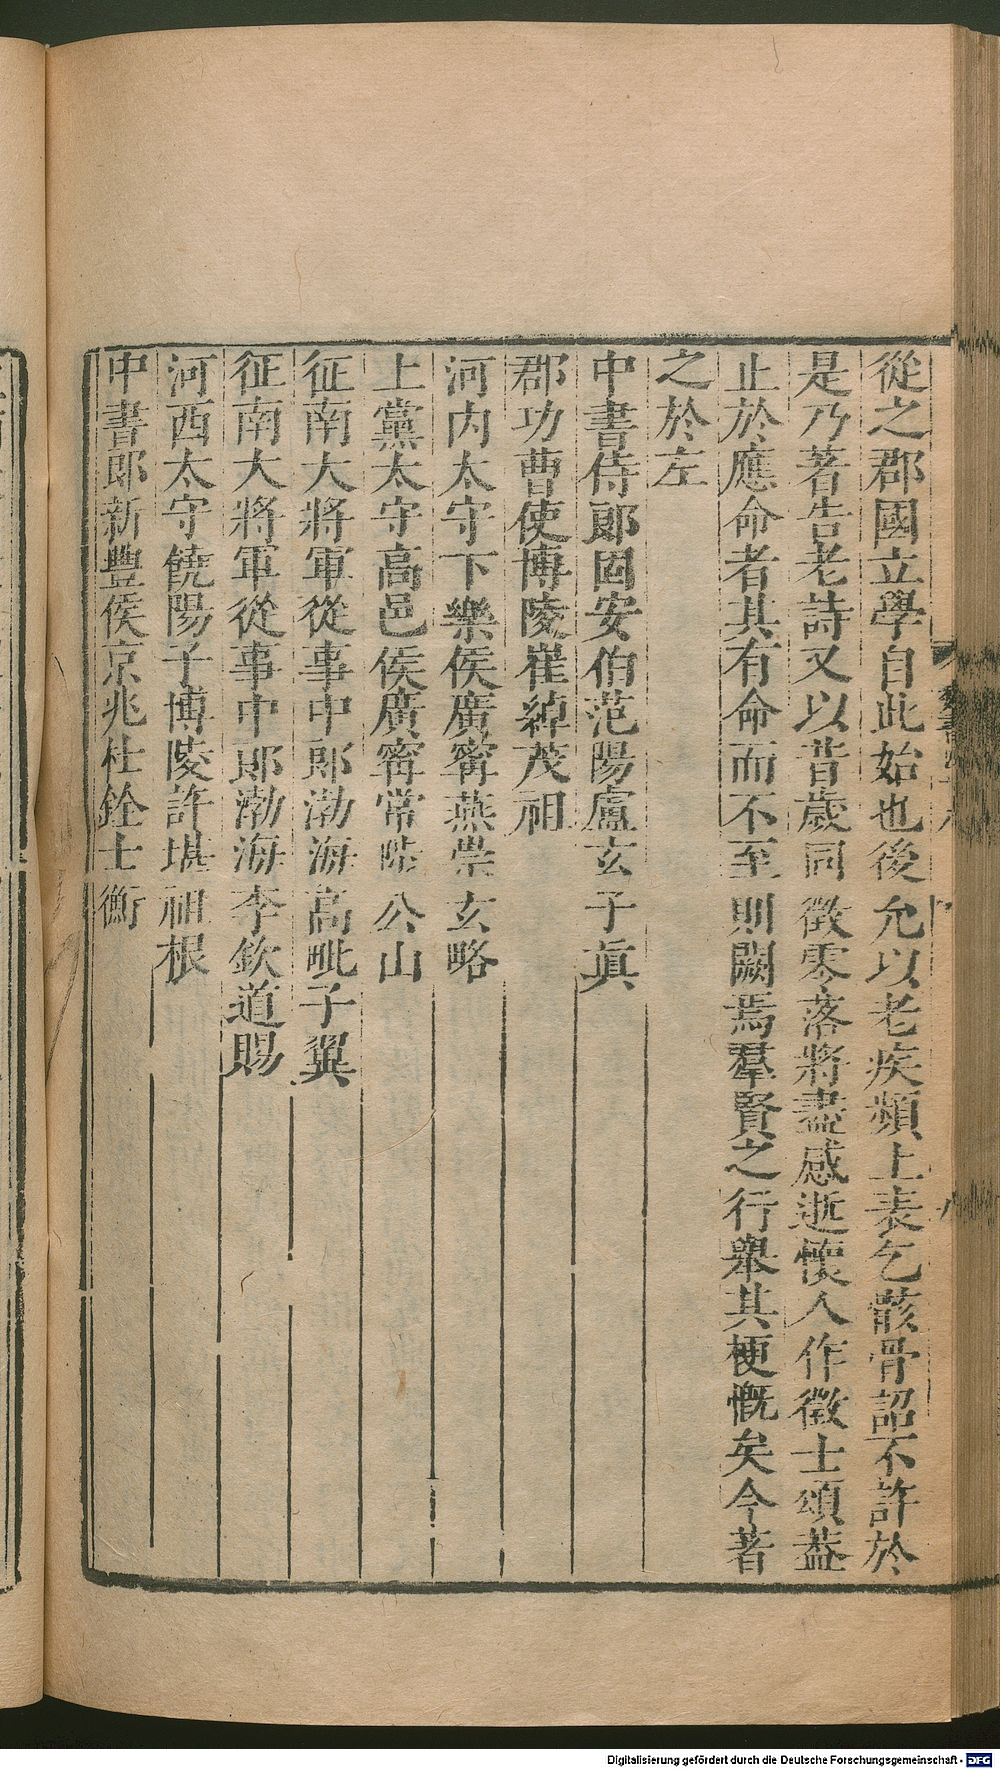 從之郡國立學自此始也後允以老疾頻上表乞骸骨詔不許於
是乃著告老詩又以昔歲同徵零落將盡感逝懷人作徵士頌葢
止於應命者其有命而不至則闕焉羣賢之行舉其梗慨矣今著
之於左
中書侍郎固安伯范陽盧玄子眞
郡功曹使博陵崔綽茂祖
河内太守下樂侯廣甯燕崇玄略
上黨太守高邑侯廣甯常陟公山
征南大將軍從事中郎渤海高毗子翼
征南大將軍從事中郎渤海李欽道賜
河西太守饒陽子博陵許堪祖根
中書郎新豐侯京兆杜銓士衡
Digitalisierung gefördert durch die Deutsche Forschungsgemeinschaft - DFG